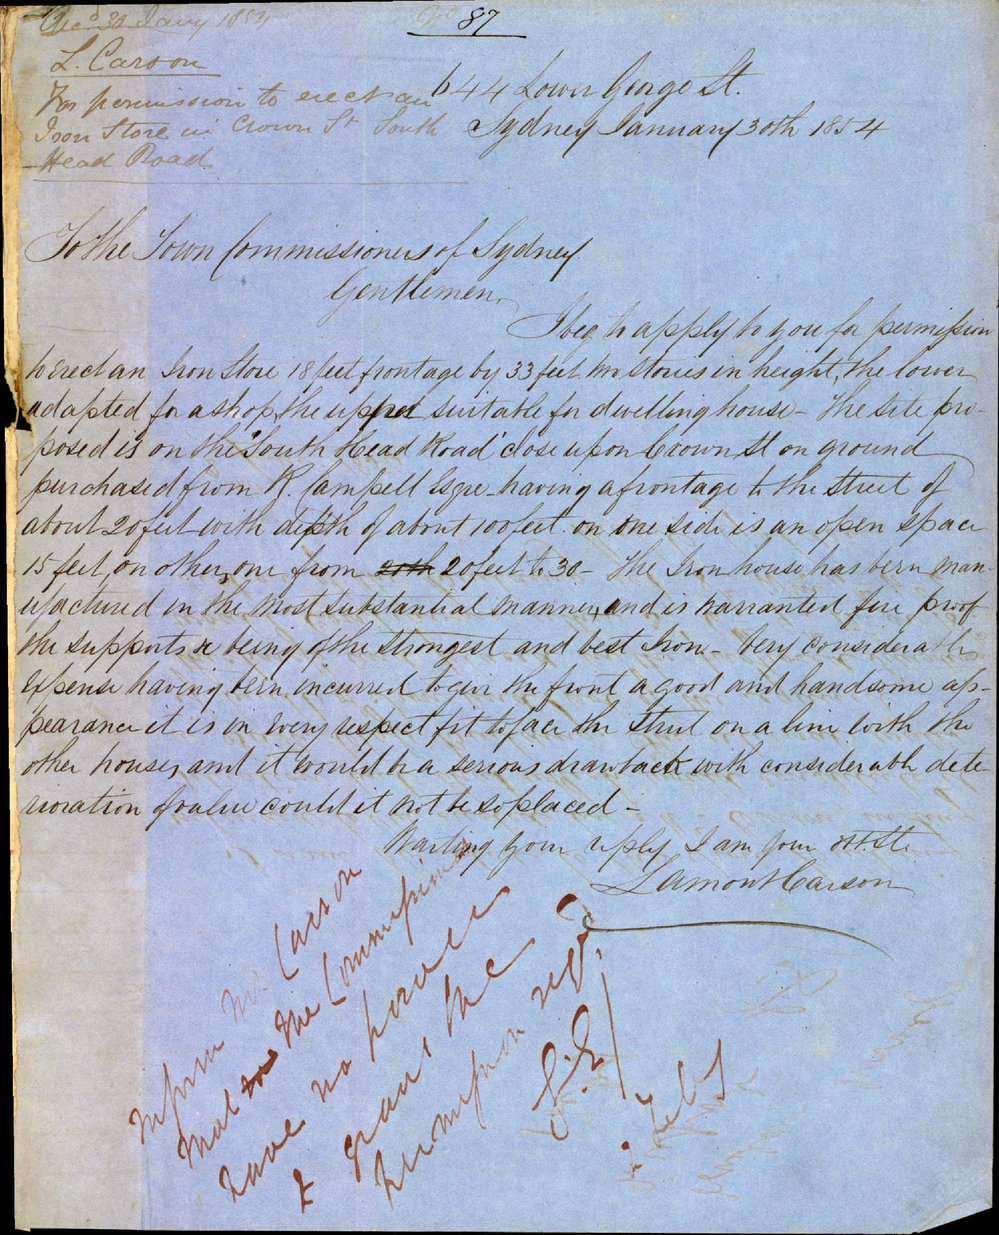 Recd 30 Jany 1854
No 87
L. Carson
For permission to erect an
Iron Store in Crown St South
Head Road
644 Lower George St.
Sydney January 30th 1854
To the Town Commissioners of Sydney
Gentlemen,
I beg to apply to you for permission
to Erect an Iron Store 18 feet frontage by 33 feet two Stories in height, the lower
adapted for a shop, the upper suitable for dwelling house - The Site pro-
posed is on the "South Head Road" close upon Crown St on ground
purchased from R. Campell Esqre having a frontage to the Street of
about 20 feet with depth of about 100 feet on one side is an open space
15 feet, on other, one from 20 feet to 30 - The Iron house has been man-
ufactured in the most substantial manner, and is warranted fire proof
the supports &c being of the strongest and best Iron - Very considerable
Expense having been incurred to give the front a good and handsome ap-
pearance it is in every respect fit to face the Street on a line with the
other houses, and it would be a serious drawback with considerable dete-
rioration of value could it not be so placed -
Waiting your reply I am your obt. St.
Lamont Carson
Inform Mr Carson
that the Commissioners
have no power
to grant the
permission reqd.
1 Feby